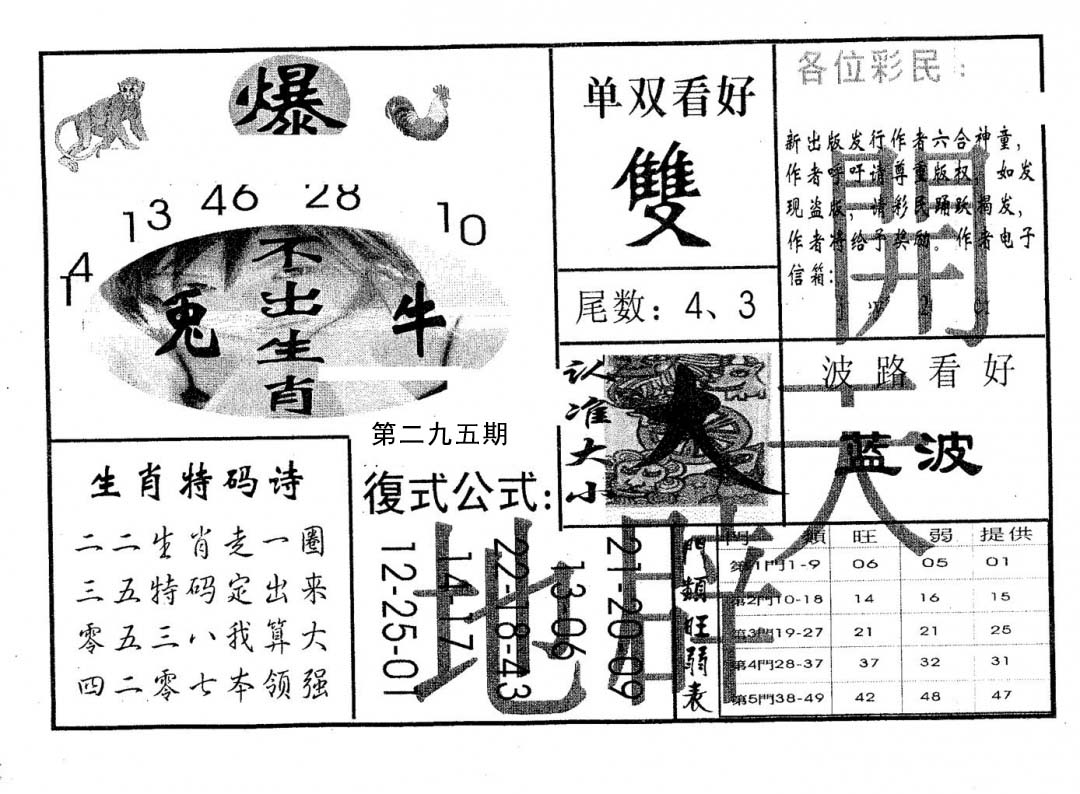 爆
4 13 46 28 10
兔 不出生肖 牛
第二九五期
单双看好
雙
尾数：4、3
各位彩民：
新出版发行作者六合神童，
作者呼吁请尊重版权，如发
现盗版，请彩民踊跃揭发，
作者将给予奖励。作者电子
信箱：
開
认准大小
大
波路看好
蓝波
天
生肖特码诗
二二生肖走一圈
三五特码定出来
零五三八我算大
四二零七本领强
復式公式：
12-25-01
14-17
22-18-43
13-06
21-20-09
地
門類旺弱表
門類 旺 弱 提供
第1門1-9 06 05 01
第2門10-18 14 16 15
第3門19-27 21 21 25
第4門28-37 37 32 31
第5門38-49 42 48 47